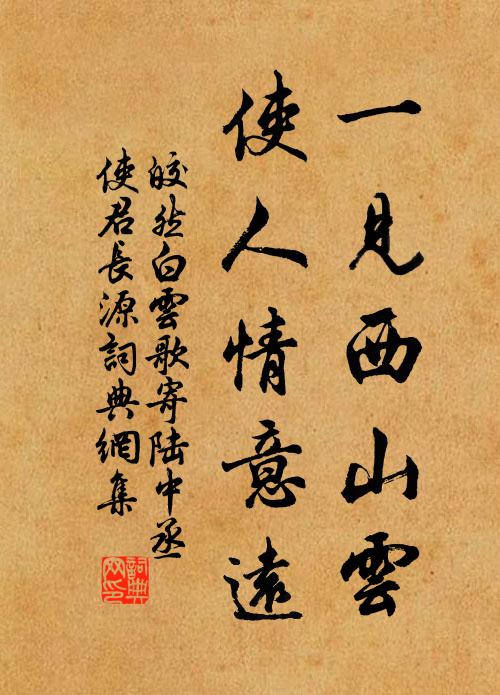 一見西山雲
使人情意遠
皎然白雲歌寄陸中丞
使君長源詞典網集
詞典網印